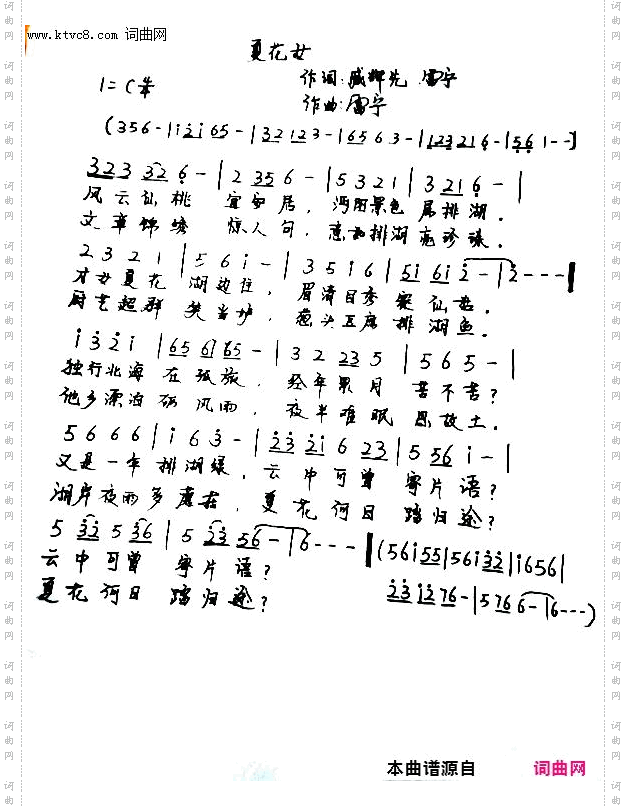 www.ktvc8.com 词曲网
夏花女
1=C 4/4 作词:臧辉先 雷宇
作曲:雷宇
(356-|i2i65-|32123-|16563-|123216-|5561--)
323326-|2356-|5321|3216-|
风云仙桃 宜安居,沔阳景色属排湖.
文章锦绣 惊人句,意如排湖亮珍珠.
2321|56i-|35i6|5i6i2-|2---|
才女夏花 湖边住,眉清目秀
厨艺超群 笑当炉,葱头 排湖鱼.
i32i|656i65-|32235|565-|
独行北海在孤旅,经年累月苦不苦?
他乡漂泊 风雨,夜半难眠思故土.
5666|i63-|232i623|556i-|
又是一年排湖绿,云中可曾寄片语?
湖岸夜雨多蘑菇,夏花何日踏归途?
532536|52356-|6---|(56i55|56i32|i656|
云中可曾 寄片语?
232i276-|5766-|6---)
夏花何日 踏归途?
本曲谱源自 词曲网